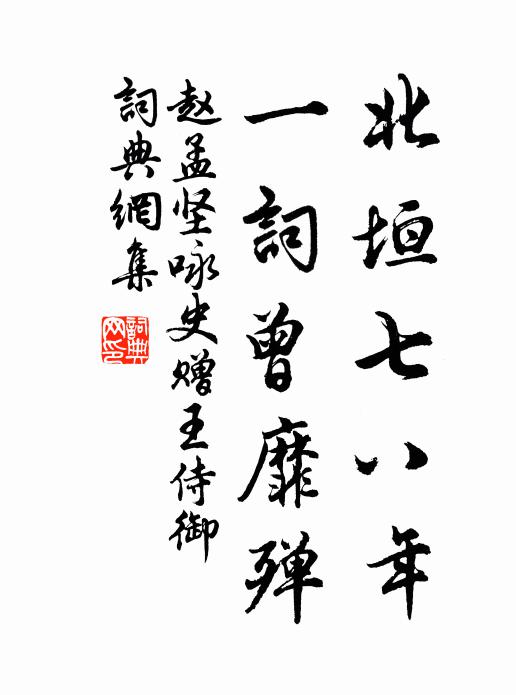 北垣七八年
一詞曾靡殫
赵孟坚咏史赠王侍御
詞典網集
詞典网印